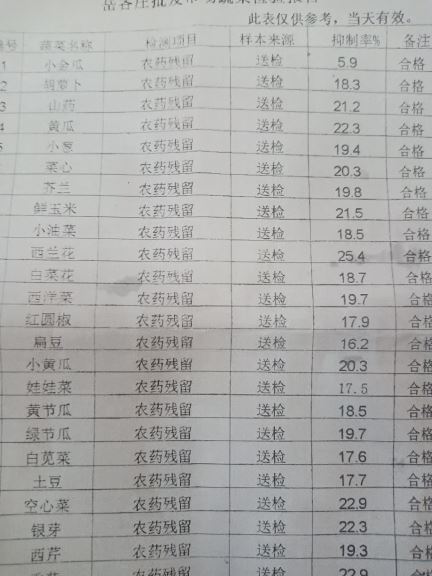 此表仅供参考，当天有效。
编号 蔬菜名称 检测项目 样本来源 抑制率% 备注
1 小金瓜 农药残留 送检 5.9 合格
2 胡萝卜 农药残留 送检 18.3 合格
3 山药 农药残留 送检 21.2 合格
4 黄瓜 农药残留 送检 22.3 合格
5 小葱 农药残留 送检 19.4 合格
菜心 农药残留 送检 20.3 合格
芥兰 农药残留 送检 19.8 合格
鲜玉米 农药残留 送检 21.5 合格
小油菜 农药残留 送检 18.5 合格
西兰花 农药残留 送检 25.4 合格
白菜花 农药残留 送检 18.7 合格
西洋菜 农药残留 送检 19.7 合格
红圆椒 农药残留 送检 17.9 合格
扁豆 农药残留 送检 16.2 合格
小黄瓜 农药残留 送检 20.3 合格
娃娃菜 农药残留 送检 17.5 合格
黄节瓜 农药残留 送检 18.5 合格
绿节瓜 农药残留 送检 19.7 合格
白苋菜 农药残留 送检 17.6 合格
土豆 农药残留 送检 17.7 合格
空心菜 农药残留 送检 22.9 合格
银芽 农药残留 送检 22.3 合格
西芹 农药残留 送检 19.3 合格
农药残留 送检 22.9 合格